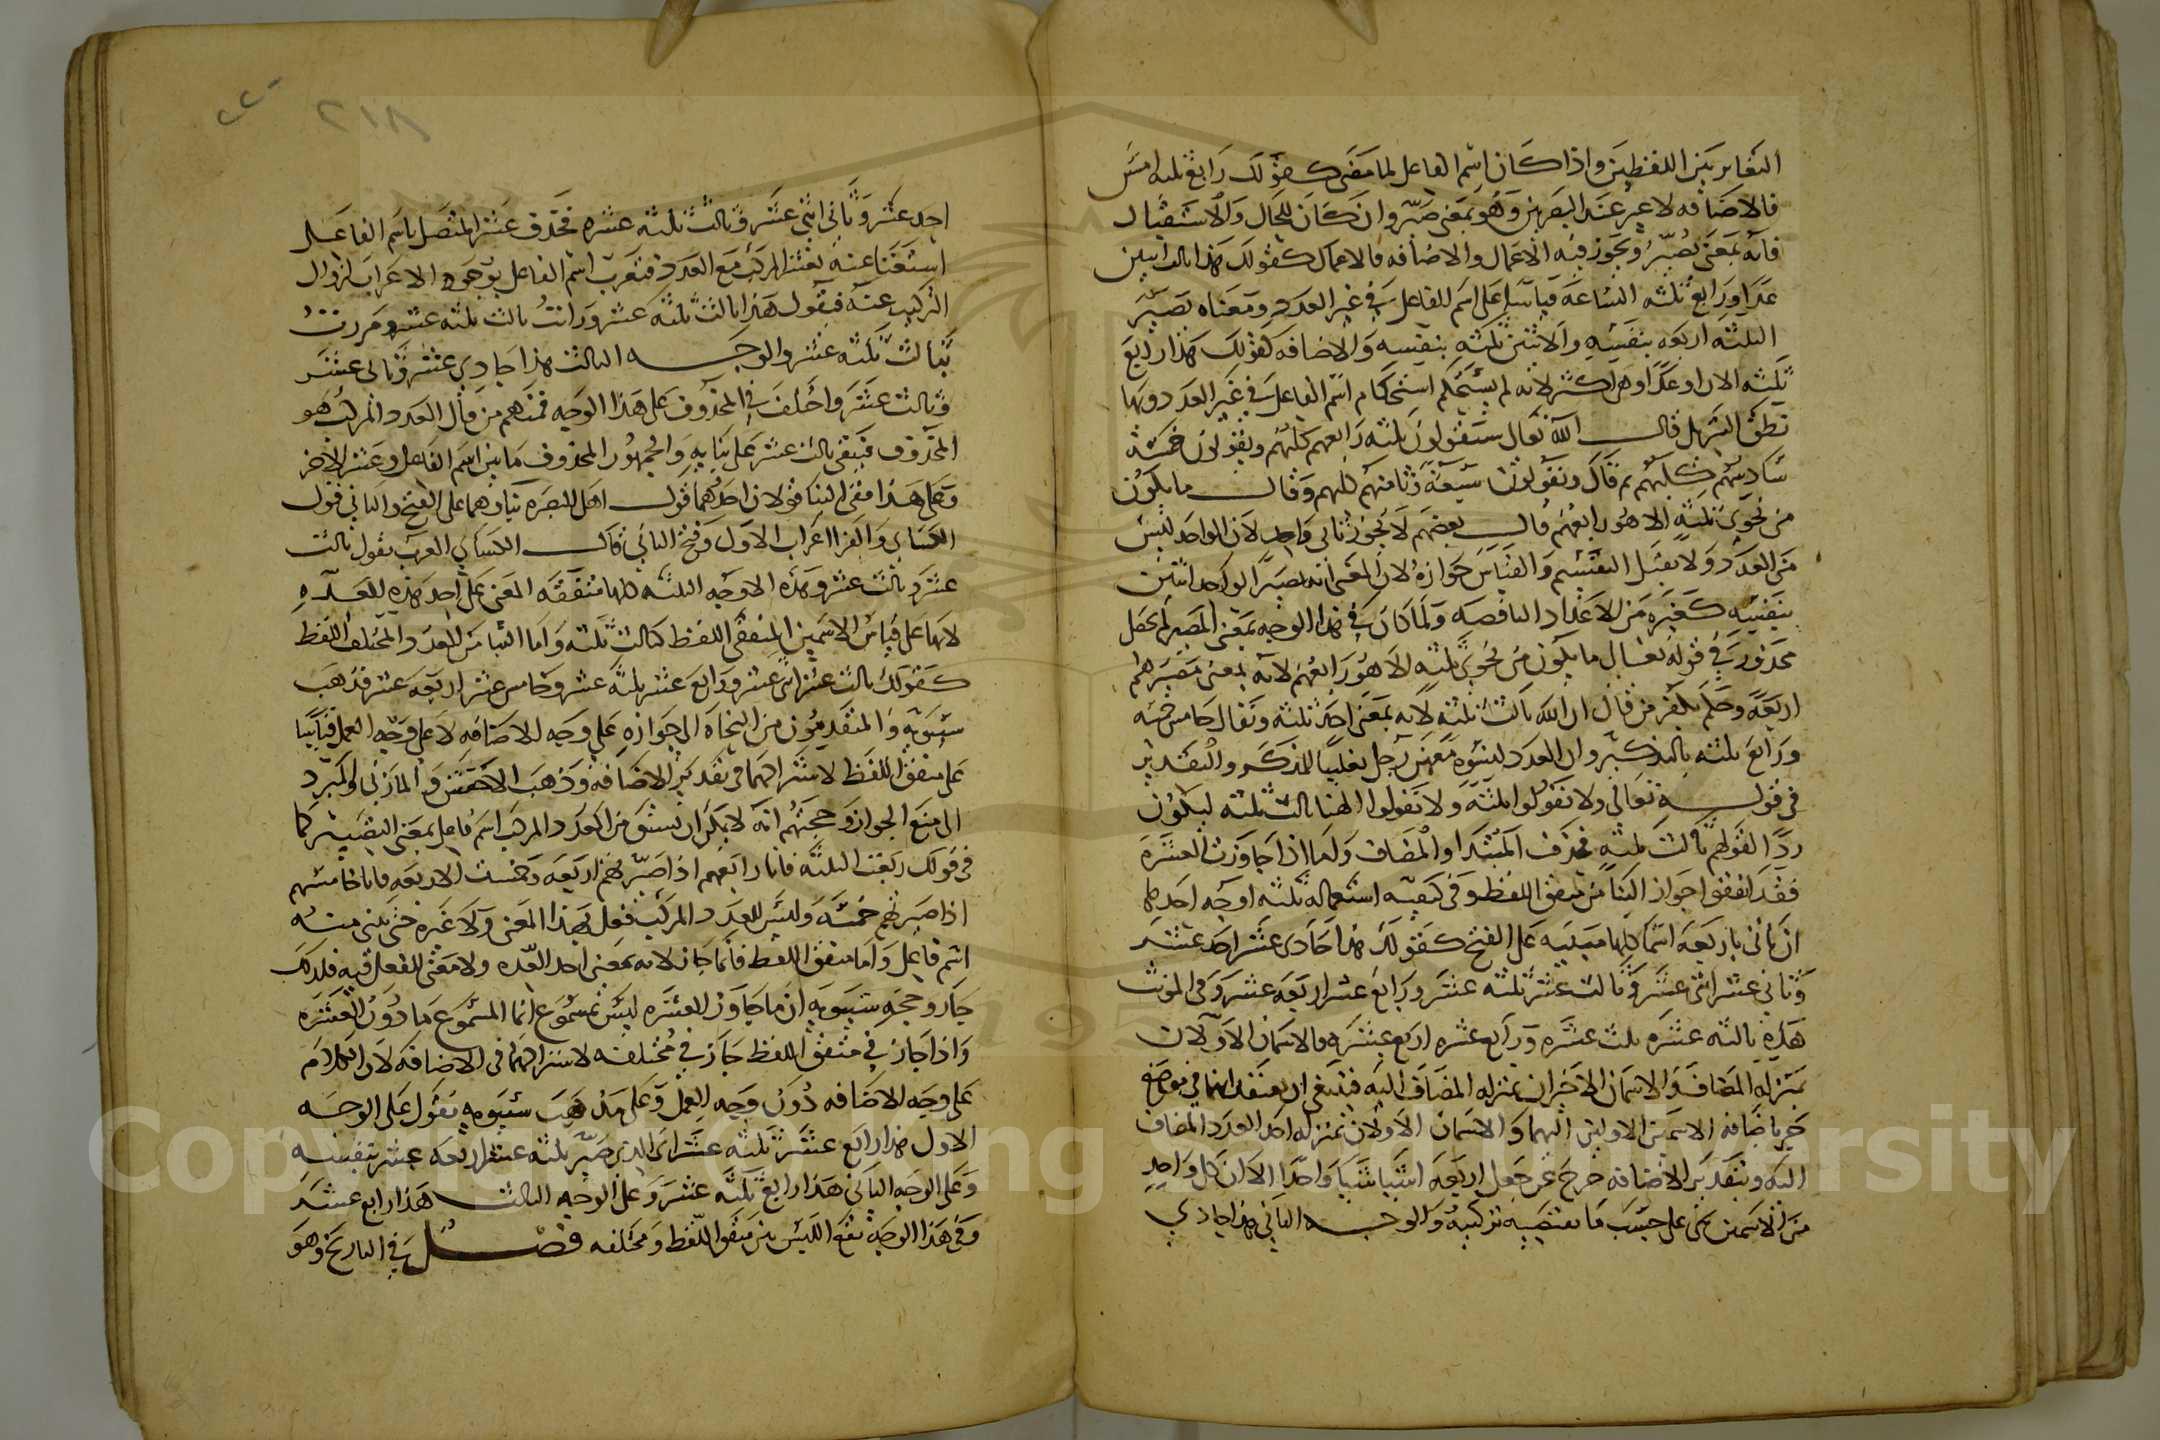 التغاير بين اللفظين واذا كان اسم الفاعل لما مضى كقولك رابع ثلثه امس
فالاضافه لا غير عند البصريين وهو بمعنى صير وان كان للحال والاستقبال
فانه بمعنى يصير ويجوز فيه الاعمال والاضافه فالاعمال كقولك هذا ثالث اثنين
غدا ورابع ثلثه الساعه قياسا على اسم الفاعل في غير العدد ومعناه تصيير
الثلثه اربعه بنفسه والاثنين ثلثه بنفسه والاضافه كقولك هذا رابع
ثلثه الان او غدا وهو اكثر لانه لم يستحكم استحكام اسم الفاعل في غير العدد وبها
نطق التنزيل قال الله تعالى سيقولون ثلثه رابعهم كلبهم ويقولون خمسة
سادسهم كلبهم ثم قال ويقولون سبعة وثامنهم كلبهم وقال ما يكون
من نجوى ثلثة الا هو رابعهم قال بعضهم لا يجوز ثاني واحد لان الواحد ليس
من العدد ولا يقبل التقسيم والقياس جوازه لان المعنى انه يصير الواحد اثنين
بنفسه كغيره من الاعداد الناقصه ولما كان في هذا الوجه بمعنى المصير لم يحصل
محذور في قوله تعالى ما يكون من نجوى ثلثة الا هو رابعهم لانه بمعنى مصيرهم
اربعة وحكم بكفر من قال ان الله ثالث ثلثة لانه بمعنى احد ثلثه وتقال خامس خمسه
ورابع ثلثه بالتذكير وان العدد لنسوه معهن رجل تغليبا للمذكر والتقدير
في قوله تعالى ولا تقولوا ثلثة ولا تقولوا الهنا ثالث ثلثه ليكون
ردا لقولهم ثالث ثلثه فحذف المبتدا والمضاف ولما اذا جاوزت العشرة
فقد اتفقوا جواز البنا من متفق اللفظ وفي كيفيه استعماله ثلثة اوجه احدها
ان ياتي باربعه اسما كلها مبنيه على الفتح كقولك هذا حادى عشر احد عشر
وثاني عشر اثنى عشر وثالث عشر ثلثه عشر ورابع عشر اربعه عشر وفي المونث
هذه ثالثه عشره ثلث عشره ورابع عشره اربع عشره فالاسمان الاولان
بمنزله المضاف والاسمان الاخران بمنزله المضاف اليه فينبغي ان يعتقد انهما في موضع
جر باضافه الاسمين الاولين اليهما والاسمان الاولان بمنزله احد العدد المضاف
اليه وبتقدير الاضافه خرج عن جعل اربعه اشيا شيا واحدا الا ان كل واحد
من الاسمين بنى على حسب ما يقتضيه تركيبه والوجه الثاني هذا حادي
احد عشر وثانى اثنى عشر وثالث ثلثه عشره فحذف عشر المتصل باسم الفاعل
استغنا عنه بعشر المركب مع العدد فتعرب اسم الفاعل بوجوه الاعراب لزوال
التركيب عنه فيقول هذا ثالث ثلثة عشر ورايت ثالث ثلثه عشر ومررت
بثالث ثلثه عشر والوجه الثالث هذا حادي عشر وثانى عشر
وثالث عشر واختلف في المحذوف على هذا الوجه فمنهم من قال العدد المركب هو
المحذوف فيبقى ثالث عشر على بنايه والجمهور المحذوف ما بين اسم الفاعل وعشر الاخر
وعلى هذا ففى البناء قولان احدهما قول اهل البصره بناوهما على الفتح والثاني قول
الكسائي والفرا اعراب الاول وفتح الثاني قال الكسائي العرب تقول ثالث
عشر وثالث عشر وهذه الاوجه الثلثه كلها متفقه المعنى على احد هذه العده
لانها على قياس الاسمين المتفقي اللفظ كثالث ثلثه واما البنا من العدد المختلف اللفظ
كقولك ثالث عشر اثنى عشر ورابع عشر ثلثة عشر وخامس عشر اربعه عشر فذهب
سيبويه والمتقدمون من النحاه الى جوازه على وجه الاضافه لا على وجه العمل قياسا
على متفق اللفظ لاشتراكهما في تقدير الاضافه وذهب الاخفش والمازني والمبرد
الى منع الجواز وحجتهم انه لا يمكن ان يشتق من العدد المركب اسم فاعل بمعنى التصيير كما
في قولك ربعت الثلثه فانا رابعهم اذا صيرتهم اربعه وخمست الاربعه فانا خامسهم
اذا صيرتهم خمسه وليس للعدد المركب فعل بهذا المعنى ولا غيره حتى يبنى منه
اسم فاعل واما متفق اللفظ فانما جاز لانه بمعنى احد العده ولا معنى للفعل فيه فلذلك
جاز وحجه سيبويه ان ما جاوز العشره ليس بمسموع انما المسموع ما دون العشره
واذا جاز في متفق اللفظ جاز في مختلفه لاشتراكهما في الاضافه لان الكلام
على وجه الاضافه دون وجه العمل وعلى مذهب سيبويه تقول على الوجه
الاول هذا رابع عشر ثلثه عشر اي الذي صير ثلثه عشر اربعه عشر بنفسه
وعلى الوجه الثاني هذا رابع ثلثه عشر وعلى الوجه الثالث هذا رابع عشر
وفي هذا الوجه يقع اللبس بين متفق اللفظ ومختلفه فصل في التاريخ وهو
٢١٨
Copyright © King Saud University